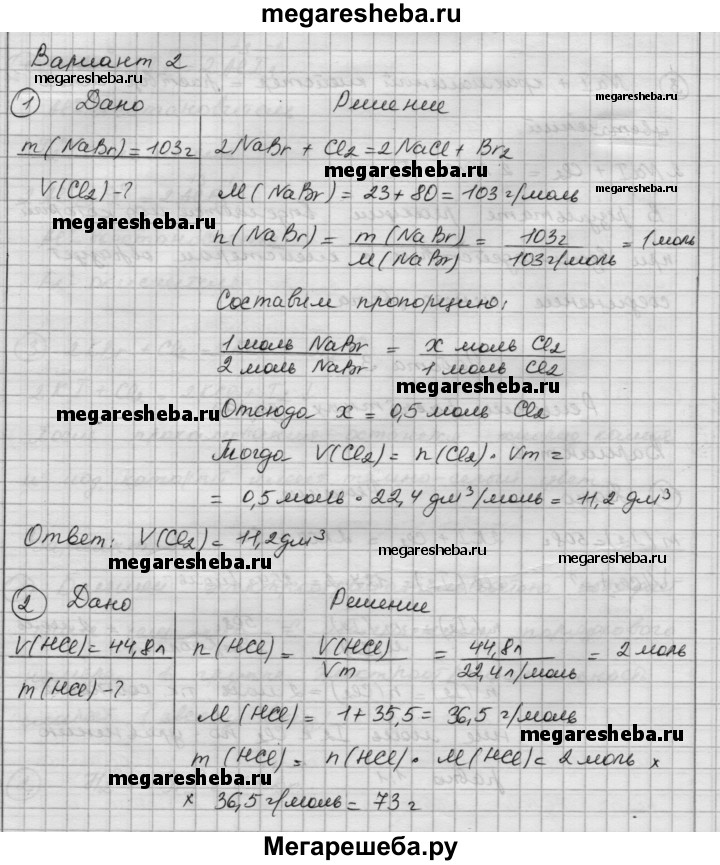 megaresheba.ru
Вариант 2
megaresheba.ru
① Дано Решение
megaresheba.ru
m(NaBr) = 103г 2NaBr + Cl₂ = 2NaCl + Br₂
megaresheba.ru
V(Cl₂) - ? M(NaBr) = 23 + 80 = 103 г/моль
megaresheba.ru
n(NaBr) = m(NaBr)/M(NaBr) = 103г/103г/моль = 1 моль
Составим пропорцию:
1 моль NaBr/2 моль NaBr = x моль Cl₂/1 моль Cl₂
megaresheba.ru
megaresheba.ru
Отсюда x = 0,5 моль Cl₂
Тогда V(Cl₂) = n(Cl₂) · Vm =
= 0,5 моль · 22,4 дм³/моль = 11,2 дм³
Ответ: V(Cl₂) = 11,2 дм³
megaresheba.ru megaresheba.ru megaresheba.ru
② Дано Решение
V(HCl) = 44,8л n(HCl) = V(HCl)/Vm = 44,8л/22,4л/моль = 2 моль
m(HCl) - ?
M(HCl) = 1 + 35,5 = 36,5 г/моль
megaresheba.ru
m(HCl) = n(HCl) · M(HCl) = 2 моль ×
megaresheba.ru
× 36,5 г/моль = 73 г
Мегарешеба.ру